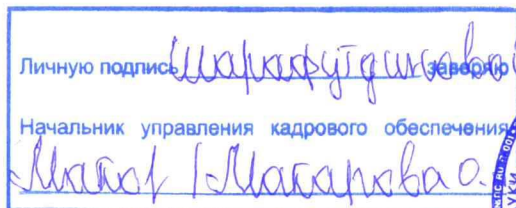 Личную подпись Шарафутдиновой заверяю
Начальник управления кадрового обеспечения
Макаг / Макарова О.